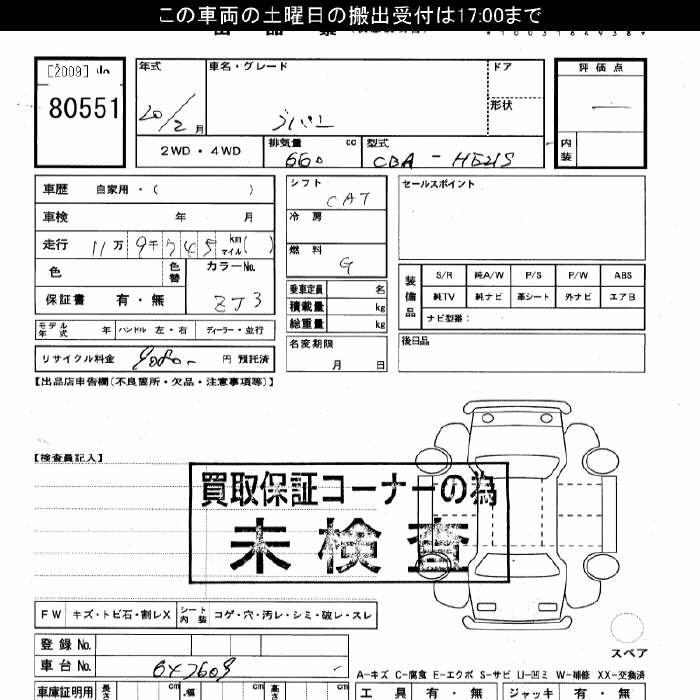 この車両の土曜日の搬出受付は17:00まで
[2009]
80551
年式
20/2月
車名・グレード
ラパン
ドア
形状
評価点
内装
2WD・4WD
排気量 660 cc
型式 CBA-HE21S
車歴 自家用・( )
車検 年 月
走行 11万9千745 km マイル( )
色
色替
カラーNo.
ZJ3
保証書 有・無
モデル年式 年
ハンドル 左・右
ディーラー・並行
リサイクル料金 円 預託済
シフト CAT
冷房
燃料 G
乗車定員 名
積載量 kg
総重量 kg
名変期限
月 日
セールスポイント
装備品
S/R 純A/W P/S P/W ABS
純TV 純ナビ 革シート 外ナビ エアB
ナビ型番:
後日品
【出品店申告欄(不良箇所・欠品・注意事項等)】
【検査員記入】
買取保証コーナーの為
未検査
FW キズ・トビ石・割レX
シート内装 コゲ・穴・汚レ・シミ・破レ・スレ
登録No.
車台No.
スペア
A-キズ C-腐食 E-エクボ S-サビ U-凹ミ W-補修 XX-交換済
車庫証明用 長さ cm 幅 cm 高さ cm
工具 有・無 ジャッキ 有・無